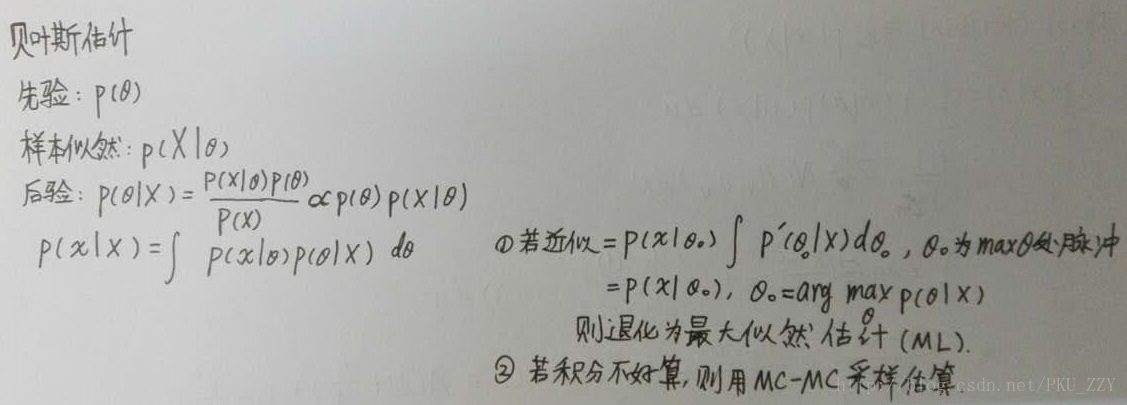 贝叶斯估计
先验: p(θ)
样本似然: p(X|θ)
后验: p(θ|X) = p(X|θ)p(θ) / p(X) ∝ p(θ) p(X|θ)
p(x|X) = ∫ p(x|θ)p(θ|X) dθ
① 若近似 = p(x|θ₀) ∫ p'(θ₀|X)dθ₀ , θ₀为maxθ处脉冲
= p(x|θ₀), θ₀ = arg max_θ p(θ|X)
则退化为最大似然估计 (ML).
② 若积分不好算, 则用MC-MC采样估算.
http://blog.csdn.net/PKU_ZZY